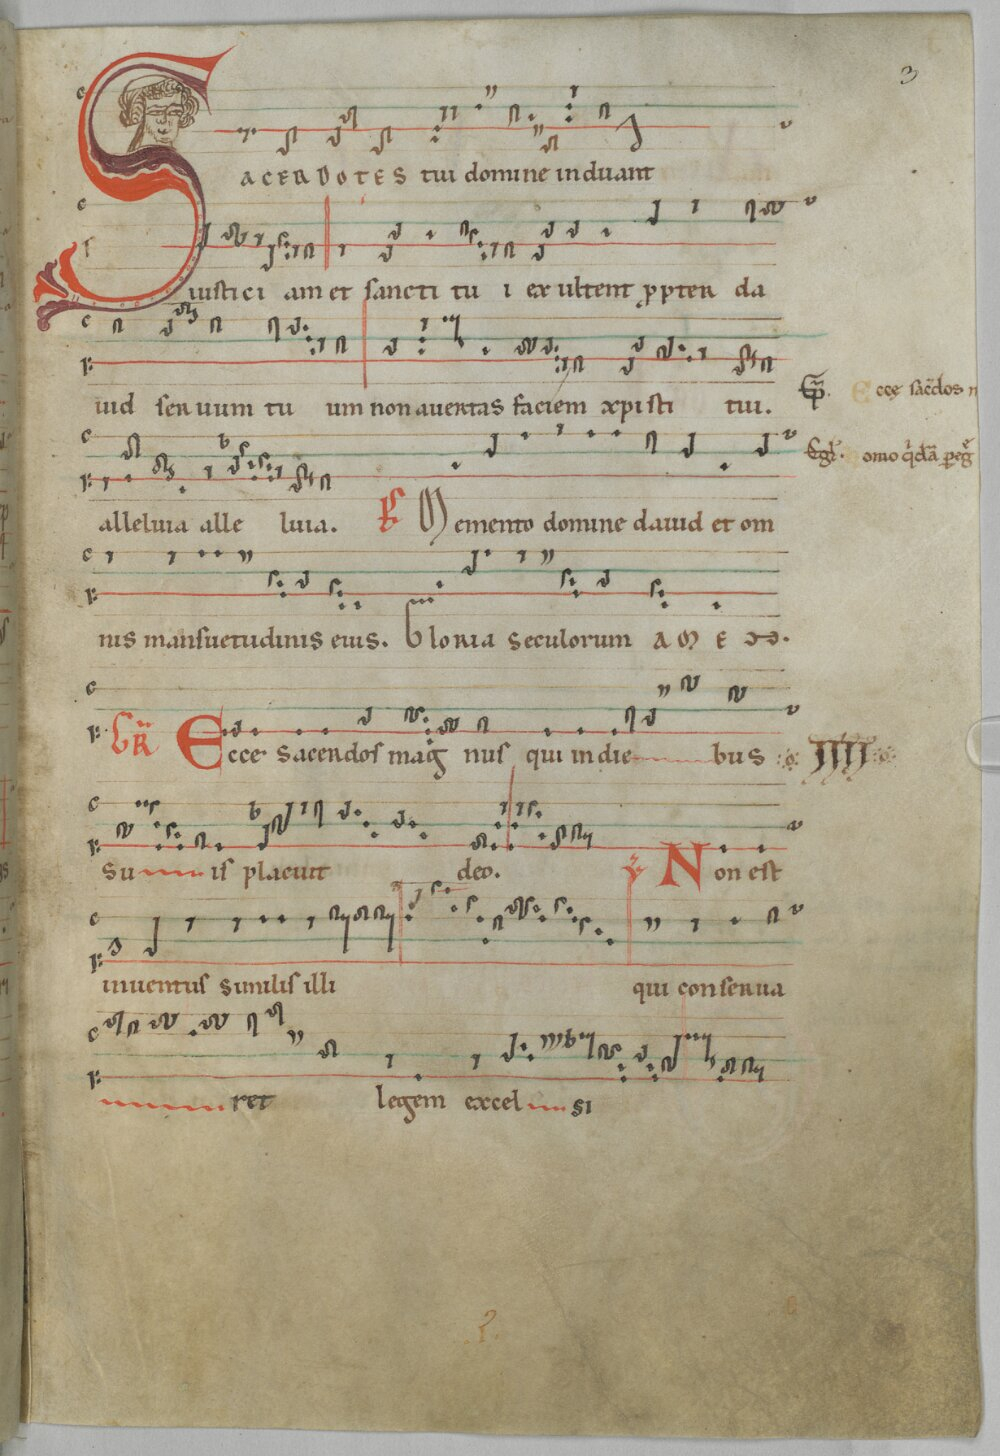 3
SACERDOTES tui domine induant
iustici am et sancti tu i exultent ꝓpter da
uid seruum tu um non auertas faciem xpisti tui.
Ecce sac̄dos
alleluia alle luia. Memento domine dauid et om
omo
nis mansuetudinis eius. Gloria seculorum AMEN.
GR̄ Ecce sacerdos mag nus qui in die bus
IIII
su is placuit deo. ℣ Non est
inuentus similis illi qui conserua
ret legem excel si